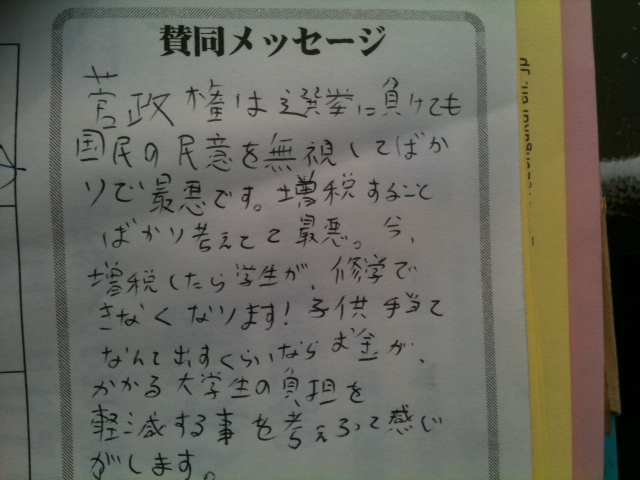 賛同メッセージ
菅政権は選挙に負けても
国民の民意を無視してばか
りで最悪です。増税すること
ばかり考えてて最悪。今、
増税したら学生が、修学で
きなくなります!子供手当て
なんて出すくらいならお金が、
かかる大学生の負担を
軽減する事を考えろって感じ
がします。